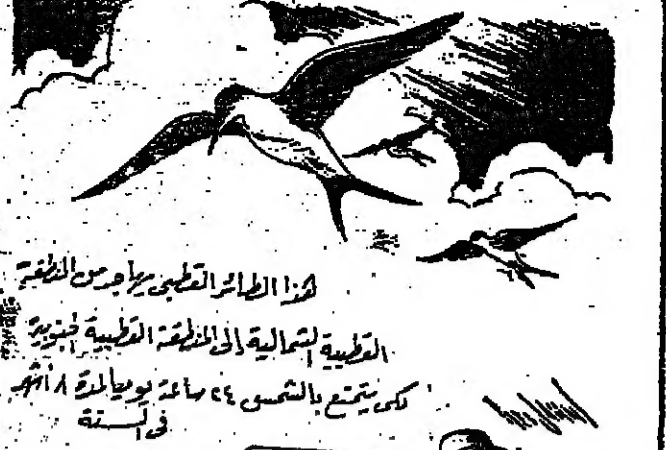 هذا الطائر القطبى يهاجر من المنطقة
القطبية الشمالية إلى المنطقة القطبية الجنوبية
لكى يتمتع بالشمس ٢٤ ساعة يوميا لمدة ٨ أشهر
فى السنة